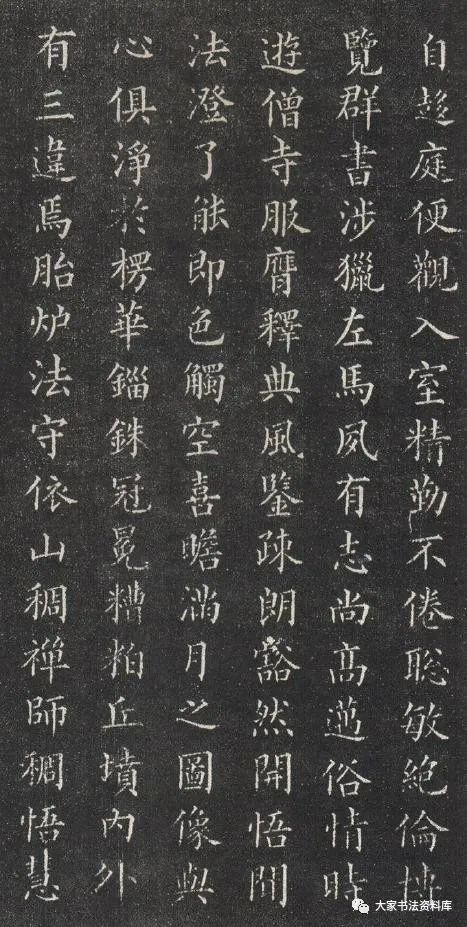 自趍庭便觀入室精勤不倦聡敏絶倫博
覽群書涉獵左馬夙有志尚髙邁俗情時
遊僧寺服膺釋典風鑒疎朗豁然開悟聞
法澄了能即色觸空喜瞻滿月之圖像與
心俱淨於楞華錙銖冠冕糟粕丘墳内外
有三違焉胎炉法守依山稠禅師稠悟慧
大家书法资料库